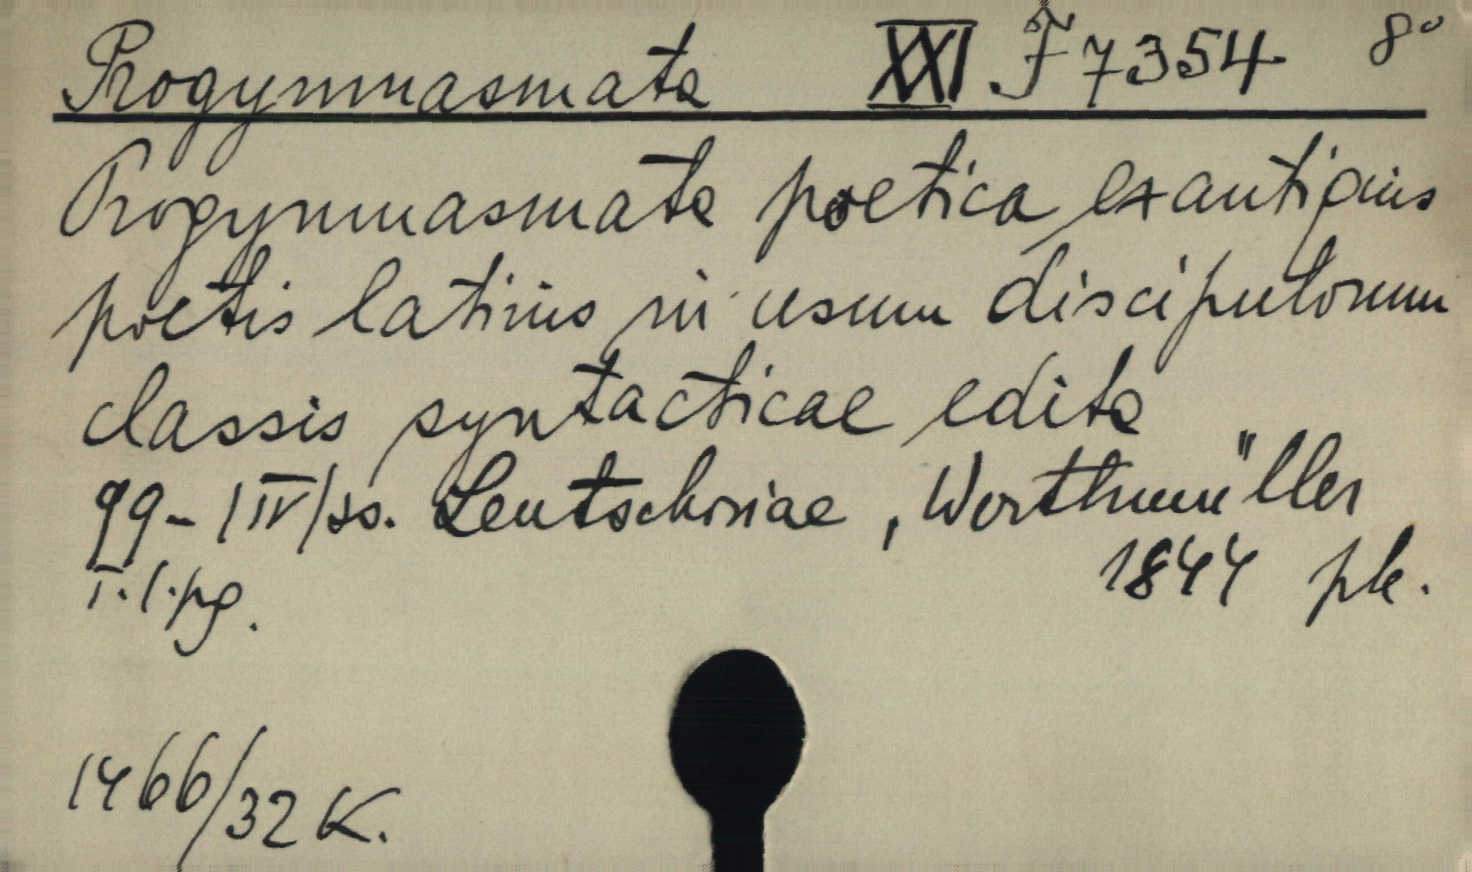 Progymnasmata XXI F 7354 8°
Progymnasmata poetica ex antiquis
poetis latinis in usum discipulorum
classis syntacticae edita
99-1 IV/ss. Leutschoviae, Werthmüller
T. l. pg. 1844 ple.
1466/32 K.